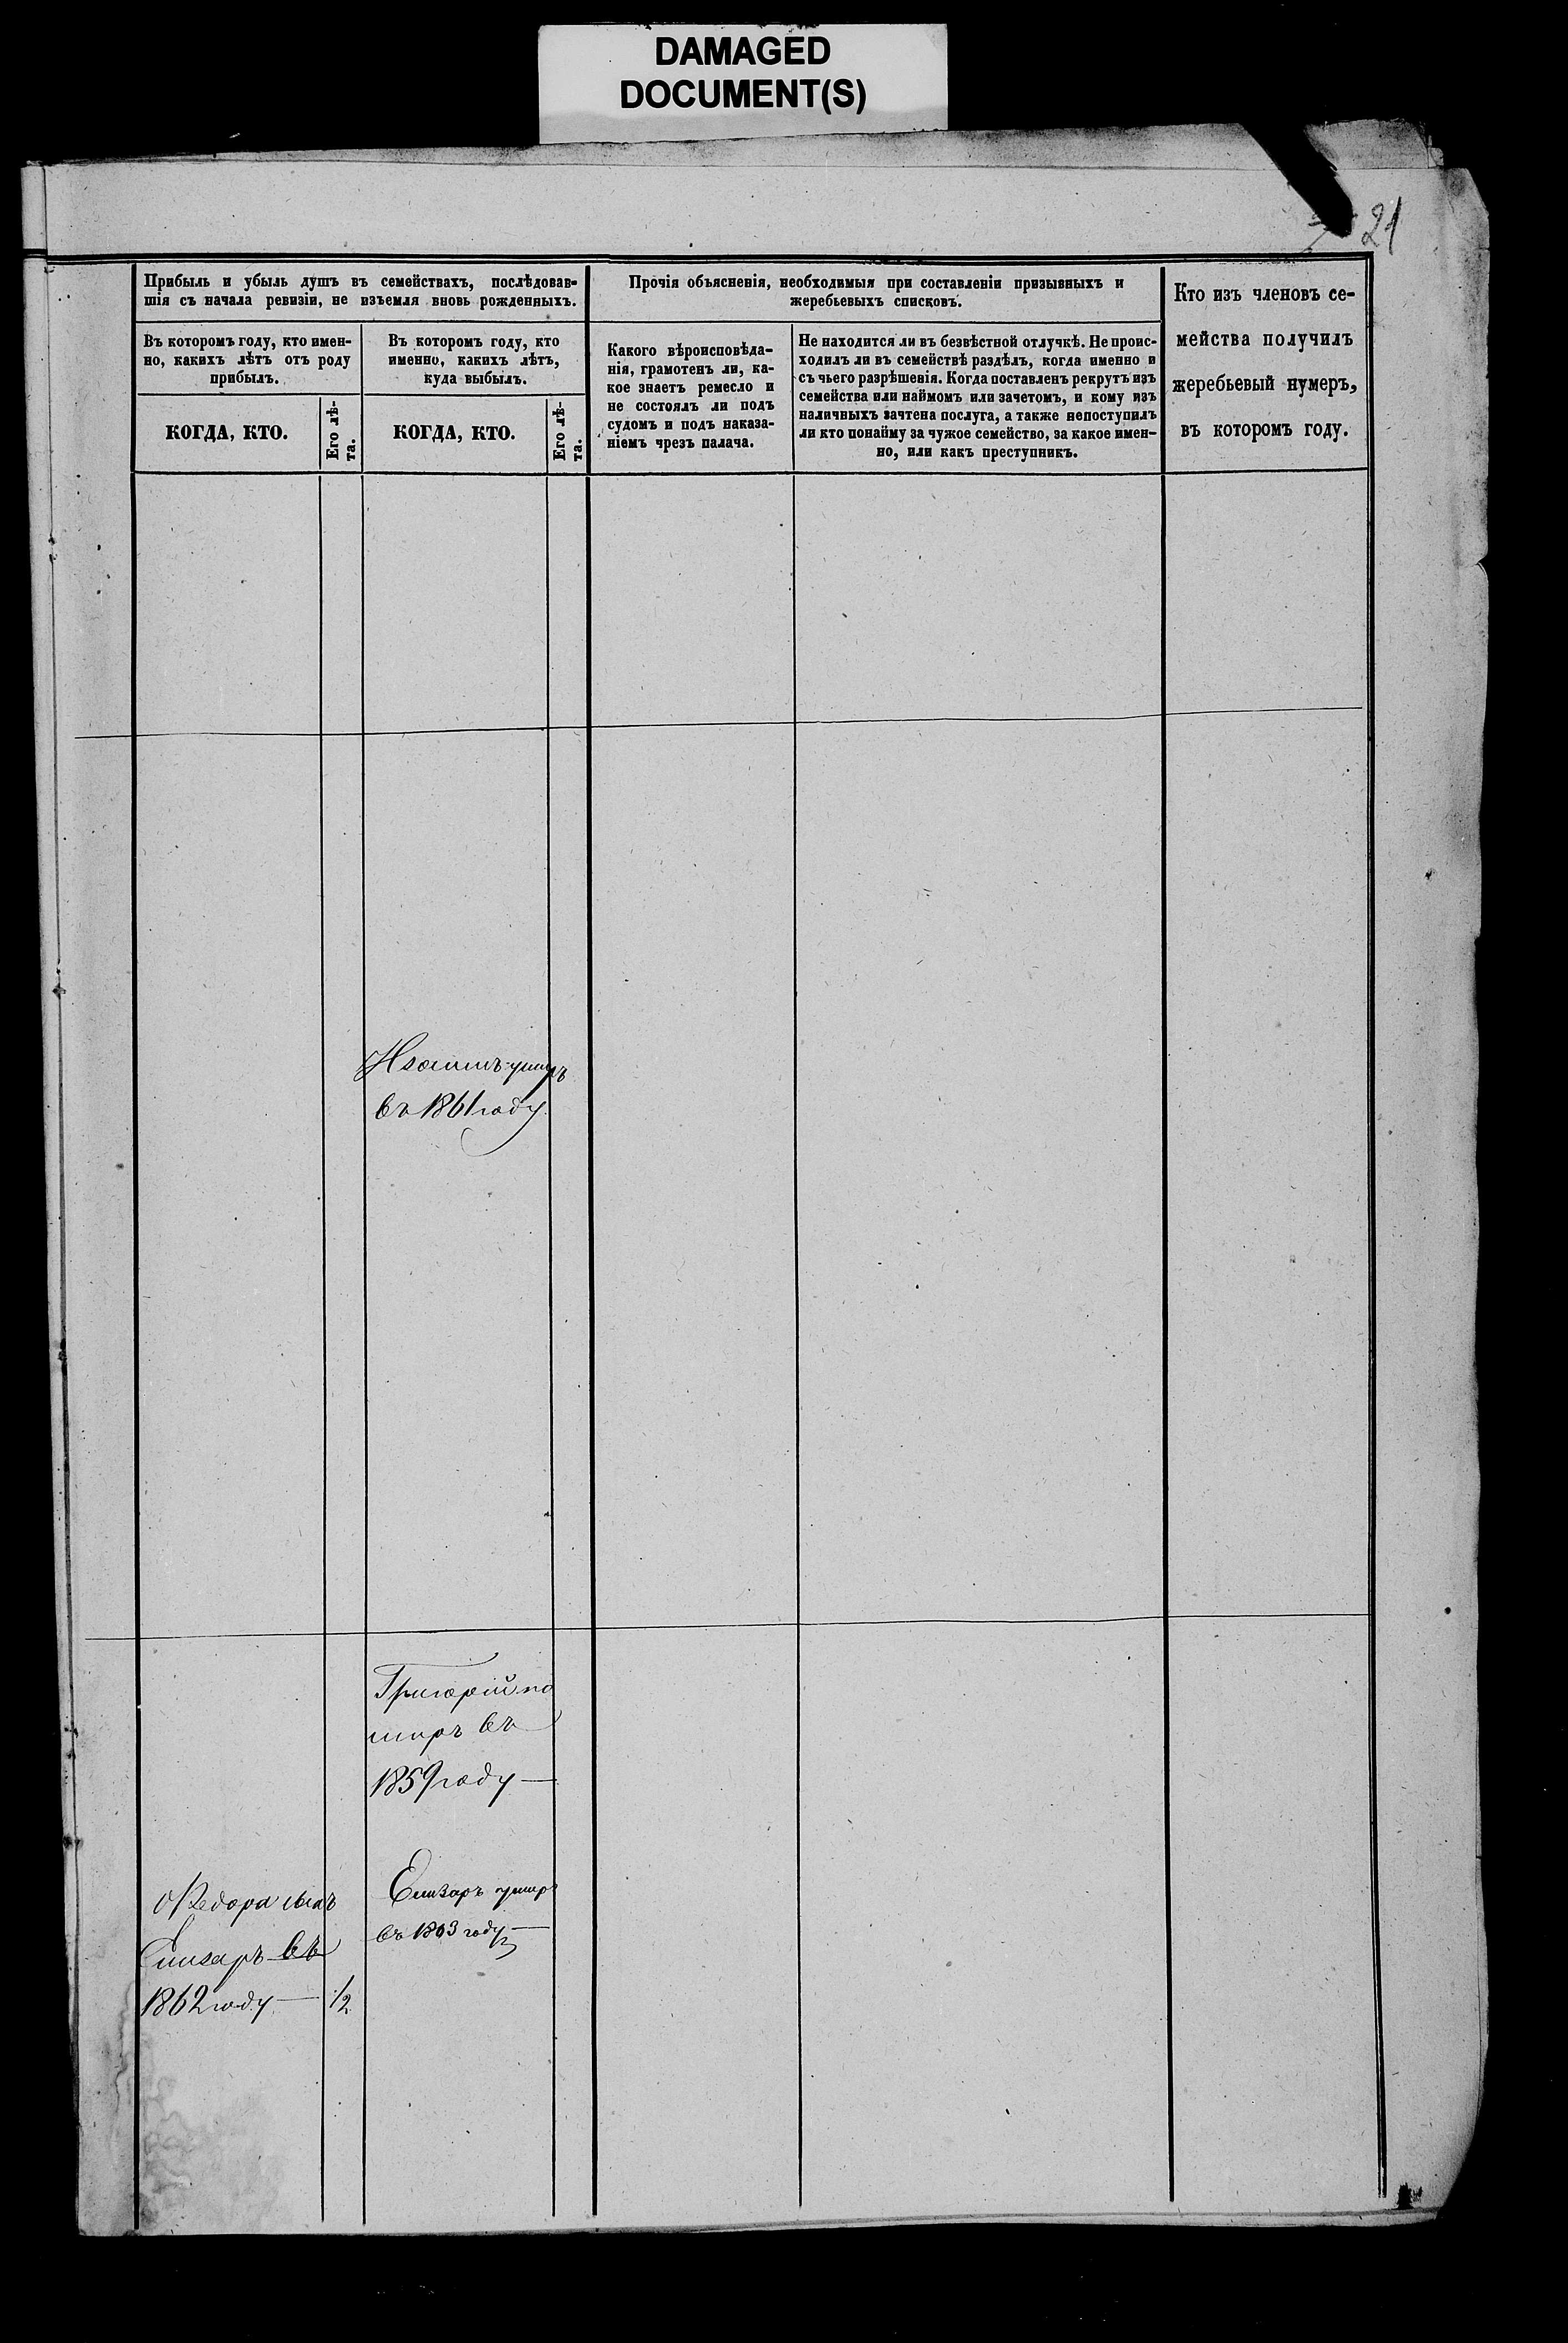 DAMAGED
DOCUMENT(S)
21
Прибыль и убыль душъ въ семействахъ, послѣдовав-
шія съ начала ревизіи, не изъемля вновь рожденныхъ.
Въ которомъ году, кто имен-
но, какихъ лѣтъ отъ роду
прибылъ.
КОГДА, КТО.
Его лѣ-
та.
Въ которомъ году, кто
именно, какихъ лѣтъ,
куда выбылъ.
КОГДА, КТО.
Его лѣ-
та.
Прочія объясненія, необходимыя при составленіи призывныхъ и
жеребьевыхъ списковъ.
Какого вѣроисповѣда-
нія, грамотенъ ли, ка-
кое знаетъ ремесло и
не состоялъ ли подъ
судомъ и подъ наказа-
ніемъ чрезъ палача.
Не находится ли въ безвѣстной отлучкѣ. Не проис-
ходилъ ли въ семействѣ раздѣлъ, когда именно и
съ чьего разрѣшенія. Когда поставленъ рекрутъ изъ
семейства или наймомъ или зачетомъ, и кому изъ
наличныхъ зачтена послуга, а также непоступилъ
ли кто понайму за чужое семейство, за какое имен-
но, или какъ преступникъ.
Кто изъ членовъ се-
мейства получилъ
жеребьевый нумеръ,
въ которомъ году.
умеръ
въ 1861 году
Григорій по
меръ въ
1859 году —
Елизаръ умеръ
въ 1863 году —
Федора сынъ
Елизаръ въ
1862 году — 1/2